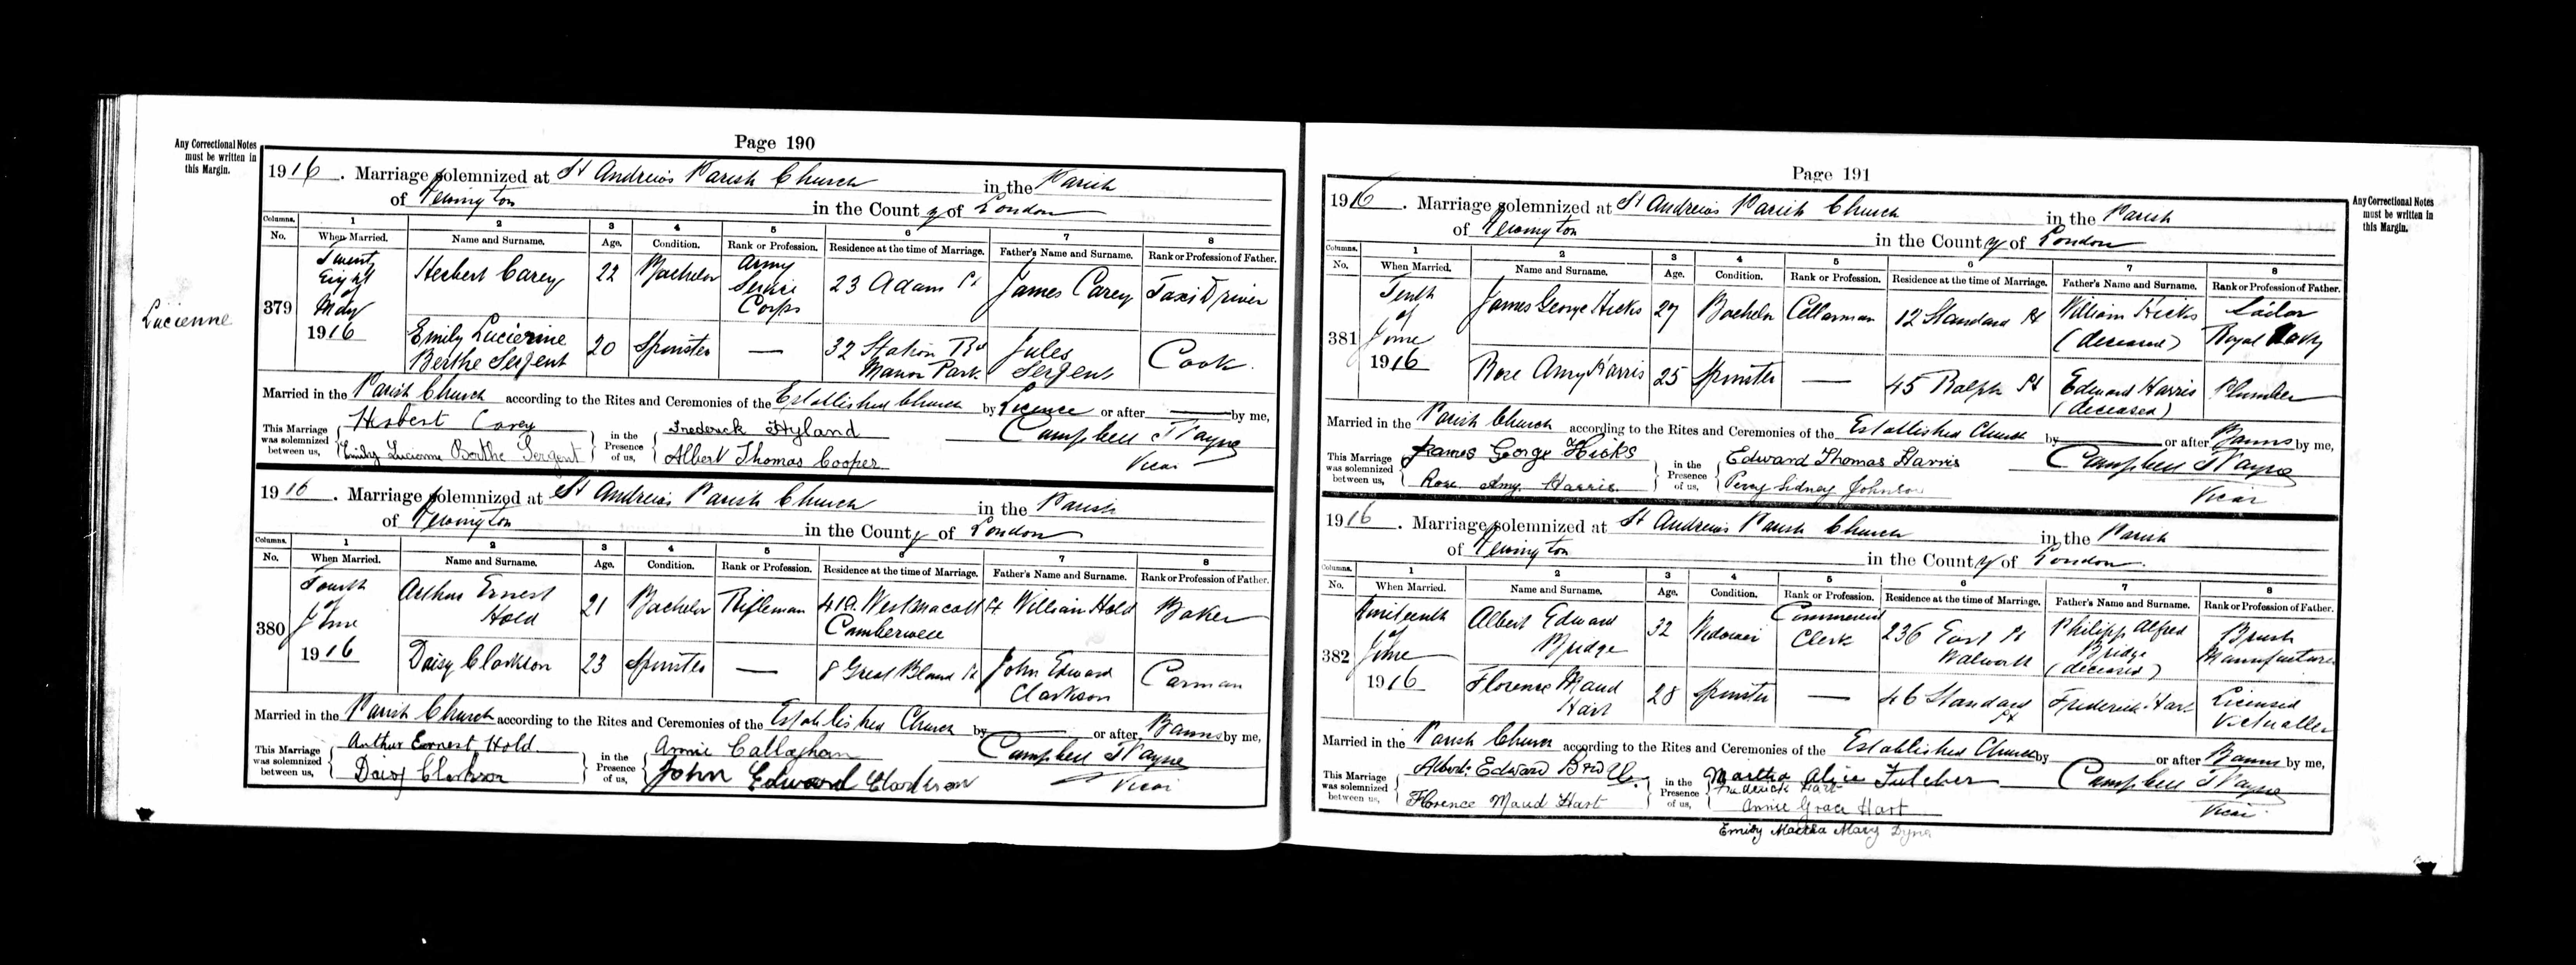 Page 190
Any Correctional Notes
must be written in
this Margin.
1916. Marriage solemnized at St Andrew's Parish Church in the Parish
of Newington in the County of London
Columns. 1 2 3 4 5 6 7 8
No. When Married. Name and Surname. Age. Condition. Rank or Profession. Residence at the time of Marriage. Father's Name and Surname. Rank or Profession of Father.
379 Twenty Eight of May 1916
Herbert Carey 22 Bachelor Army Service Corps 23 Adam St James Carey Taxi Driver
Lucienne
Emily Lucienne Berthe Sergent 20 Spinster — 32 Station Rd Manor Park Jules Sergent Cook.
Married in the Parish Church according to the Rites and Ceremonies of the Established Church by Licence or after — by me,
This Marriage was solemnized between us, Herbert Carey in the Presence of us, Frederick Hyland Campbell
Emily Lucienne Berthe Sergent Albert Thomas Cooper Vicar
1916. Marriage solemnized at St Andrew's Parish Church in the Parish
of Newington in the County of London
Columns. 1 2 3 4 5 6 7 8
No. When Married. Name and Surname. Age. Condition. Rank or Profession. Residence at the time of Marriage. Father's Name and Surname. Rank or Profession of Father.
380 Fourth of June 1916
Arthur Ernest Hold 21 Bachelor Rifleman 41a. Westmacott St Camberwell William Hold Baker
Daisy Clarkson 23 Spinster — 8 Great Bland St John Edward Clarkson Carman
Married in the Parish Church according to the Rites and Ceremonies of the Established Church by — or after Banns by me,
This Marriage was solemnized between us, Arthur Ernest Hold in the Presence of us, Annie Callaghan Campbell
Daisy Clarkson John Edward Clarkson Vicar
Page 191
Any Correctional Notes
must be written in
this Margin.
1916. Marriage solemnized at St Andrew's Parish Church in the Parish
of Newington in the County of London
Columns. 1 2 3 4 5 6 7 8
No. When Married. Name and Surname. Age. Condition. Rank or Profession. Residence at the time of Marriage. Father's Name and Surname. Rank or Profession of Father.
381 Tenth of June 1916
James George Hicks 27 Bachelor Cellarman 12 Standard St William Hicks (deceased) Sailor Royal Navy
Rose Amy Harris 25 Spinster — 45 Ralph St Edward Harris (deceased) Plumber
Married in the Parish Church according to the Rites and Ceremonies of the Established Church by — or after Banns by me,
This Marriage was solemnized between us, James George Hicks in the Presence of us, Edward Thomas Harris Campbell
Rose Amy Harris. Percy Sidney Johnson Vicar
1916. Marriage solemnized at St Andrew's Parish Church in the Parish
of Newington in the County of London.
Columns. 1 2 3 4 5 6 7 8
No. When Married. Name and Surname. Age. Condition. Rank or Profession. Residence at the time of Marriage. Father's Name and Surname. Rank or Profession of Father.
382 of June 1916
Albert Edward Bridge 32 Widower Commercial Clerk 236 East St Walworth Philipp Alfred Bridge (deceased) Brush Manufacturer
Florence Maud Hart 28 Spinster — 46 Standard St Frederick Hart Licensed Victualler
Married in the Parish Church according to the Rites and Ceremonies of the Established Church by — or after Banns by me,
This Marriage was solemnized between us, Albert Edward Bridge. in the Presence of us, Martha Alice Fulcher Campbell
Frederick Hart
Florence Maud Hart Annie Grace Hart Vicar
Emily Martha Mary